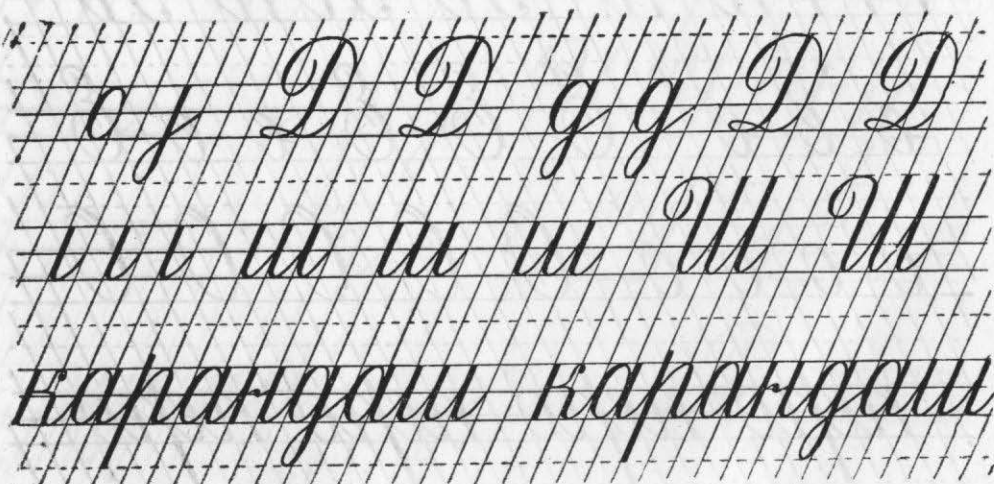 о j Д Д д д Д Д
ι ι ι ш ш ш Ш Ш
карандаш карандаш